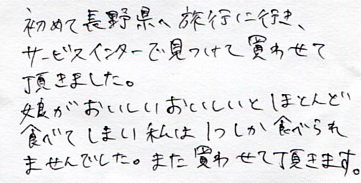 初めて長野県へ旅行に行き、
サービスインターで見つけて買わせて
頂きました。
娘がおいしいおいしいとほとんど
食べてしまい私は1つしか食べられ
ませんでした。また買わせて頂きます。